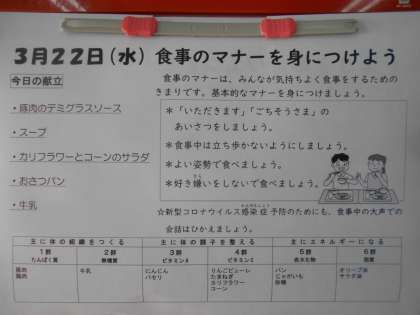 3月22日(水) 食事のマナーを身につけよう
今日の献立
・豚肉のデミグラスソース
・スープ
・カリフラワーとコーンのサラダ
・おさつパン
・牛乳
食事のマナーは、みんなが気持ちよく食事をするための
きまりです。基本的なマナーを身につけましょう。
＊「いただきます」「ごちそうさま」の
あいさつをしましょう。
＊食事中は立ち歩かないようにしましょう。
＊よい姿勢で食べましょう。
＊好き嫌いをしないで食べましょう。
☆新型コロナウイルス感染症予防のためにも、食事中の大声での
会話はひかえましょう。
主に体の組織をつくる 主に体の調子を整える 主にエネルギーになる
1群 2群 3群 4群 5群 6群
たんぱく質 無機質 ビタミンA ビタミンC 炭水化物 脂質
豚肉 牛乳 にんじん りんごピューレ パン オリーブ油
鶏肉 パセリ たまねぎ じゃがいも サラダ油
カリフラワー 砂糖
コーン